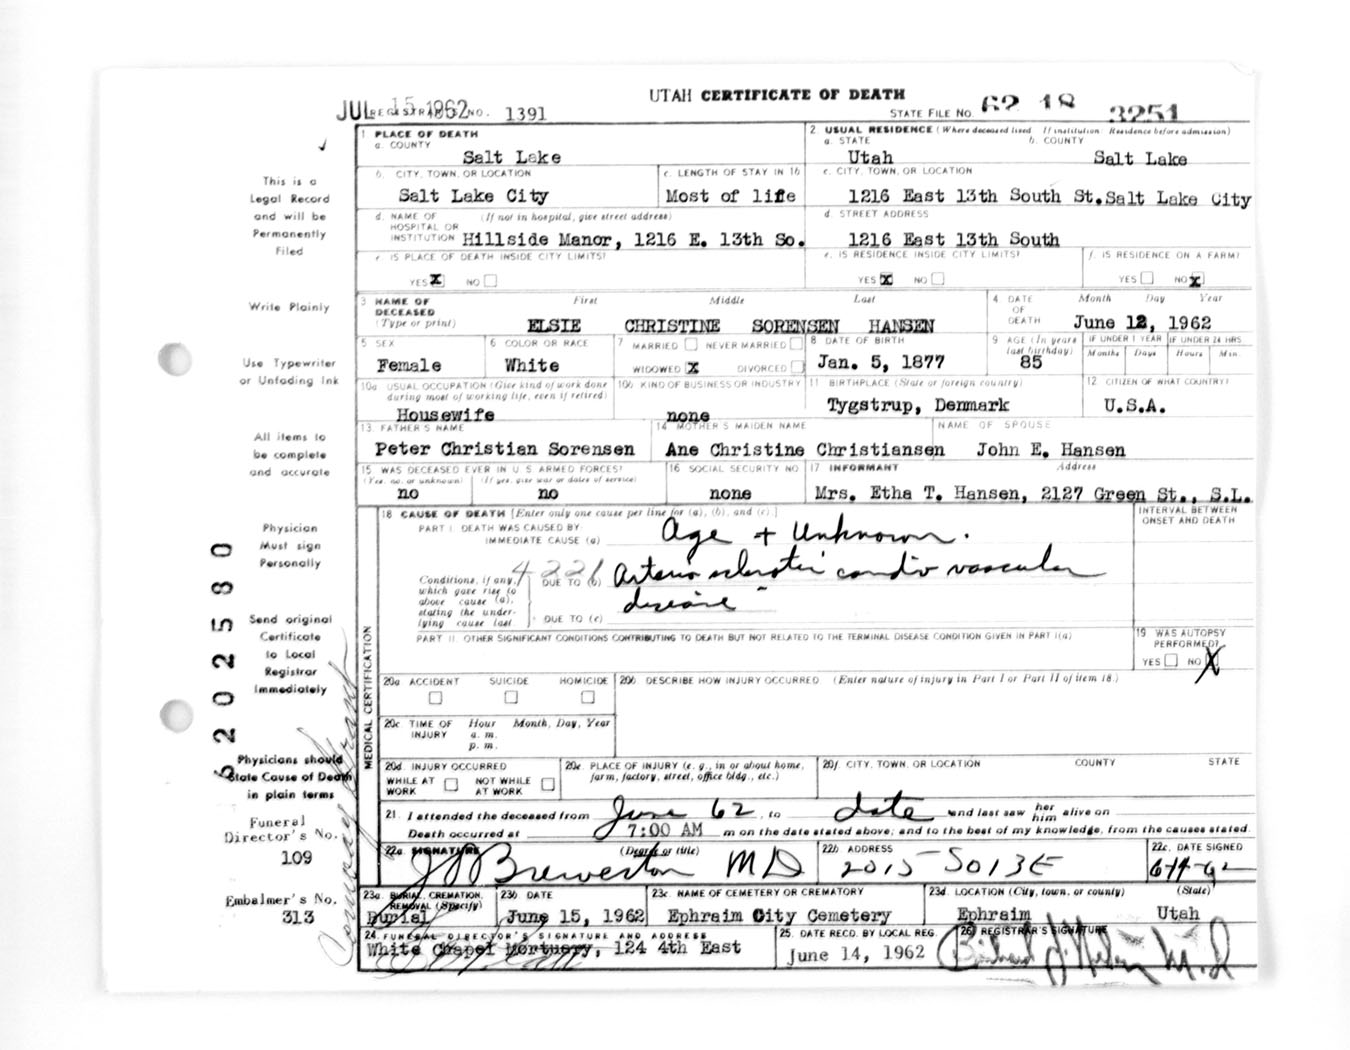 UTAH CERTIFICATE OF DEATH
JUL 15 1962
REGISTRAR'S NO. 1391
STATE FILE NO. 62 18 3251
1 PLACE OF DEATH
a. COUNTY
Salt Lake
2. USUAL RESIDENCE (Where deceased lived. If institution: Residence before admission)
a. STATE b. COUNTY
Utah Salt Lake
b. CITY, TOWN, OR LOCATION
Salt Lake City
c. LENGTH OF STAY IN 1b
Most of life
c. CITY, TOWN, OR LOCATION
1216 East 13th South St.Salt Lake City
d. NAME OF HOSPITAL OR INSTITUTION (If not in hospital, give street address)
Hillside Manor, 1216 E. 13th So.
d. STREET ADDRESS
1216 East 13th South
e. IS PLACE OF DEATH INSIDE CITY LIMITS?
YES X NO
e. IS RESIDENCE INSIDE CITY LIMITS?
YES X NO
f. IS RESIDENCE ON A FARM?
YES NO X
3 NAME OF DECEASED (Type or print)
First Middle Last
ELSIE CHRISTINE SORENSEN HANSEN
4 DATE OF DEATH
Month Day Year
June 12, 1962
5 SEX
Female
6 COLOR OR RACE
White
7 MARRIED NEVER MARRIED
WIDOWED X DIVORCED
8 DATE OF BIRTH
Jan. 5, 1877
9 AGE (In years last birthday)
85
IF UNDER 1 YEAR
Months Days
IF UNDER 24 HRS
Hours Min.
10a USUAL OCCUPATION (Give kind of work done during most of working life, even if retired)
Housewife
10b KIND OF BUSINESS OR INDUSTRY
none
11 BIRTHPLACE (State or foreign country)
Tygstrup, Denmark
12. CITIZEN OF WHAT COUNTRY?
U.S.A.
13. FATHER'S NAME
Peter Christian Sorensen
14 MOTHER'S MAIDEN NAME
Ane Christine Christiansen
NAME OF SPOUSE
John E. Hansen
15 WAS DECEASED EVER IN U.S. ARMED FORCES?
(Yes, no, or unknown) (If yes, give war or dates of service)
no no
16 SOCIAL SECURITY NO.
none
17 INFORMANT Address
Mrs. Etha T. Hansen, 2127 Green St., S.L.
18 CAUSE OF DEATH [Enter only one cause per line for (a), (b), and (c).]
INTERVAL BETWEEN ONSET AND DEATH
PART I. DEATH WAS CAUSED BY:
IMMEDIATE CAUSE (a) Age + Unknown.
4221
Conditions, if any, which gave rise to above cause (a), stating the underlying cause last.
DUE TO (b) Arterio sclerotic cardio vascular
disease
DUE TO (c)
PART II. OTHER SIGNIFICANT CONDITIONS CONTRIBUTING TO DEATH BUT NOT RELATED TO THE TERMINAL DISEASE CONDITION GIVEN IN PART I(a)
19 WAS AUTOPSY PERFORMED?
YES NO X
MEDICAL CERTIFICATION
20a ACCIDENT SUICIDE HOMICIDE
20b DESCRIBE HOW INJURY OCCURRED (Enter nature of injury in Part I or Part II of item 18.)
20c TIME OF INJURY Hour Month, Day, Year
a. m.
p. m.
20d INJURY OCCURRED
WHILE AT WORK NOT WHILE AT WORK
20e. PLACE OF INJURY (e. g., in or about home, farm, factory, street, office bldg., etc.)
20f CITY, TOWN, OR LOCATION COUNTY STATE
21. I attended the deceased from June 62, to date and last saw her him alive on
Death occurred at 7:00 AM m on the date stated above; and to the best of my knowledge, from the causes stated.
22a SIGNATURE (Degree or title)
Brewerton MD
22b ADDRESS
2015 So 13 E
22c. DATE SIGNED
6-14-62
23a BURIAL, CREMATION, REMOVAL (Specify)
Burial
23b DATE
June 15, 1962
23c NAME OF CEMETERY OR CREMATORY
Ephraim City Cemetery
23d. LOCATION (City, town, or county) (State)
Ephraim Utah
24 FUNERAL DIRECTOR'S SIGNATURE AND ADDRESS
White Chapel Mortuary, 124 4th East
25. DATE RECD. BY LOCAL REG.
June 14, 1962
26 REGISTRAR'S SIGNATURE
This is a
Legal Record
and will be
Permanently
Filed
Write Plainly
Use Typewriter
or Unfading Ink
All items to
be complete
and accurate
Physician
Must sign
Personally
Send original
Certificate
to Local
Registrar
Immediately
Physicians should
State Cause of Death
in plain terms
Funeral
Director's No.
109
Embalmer's No.
313
6202580